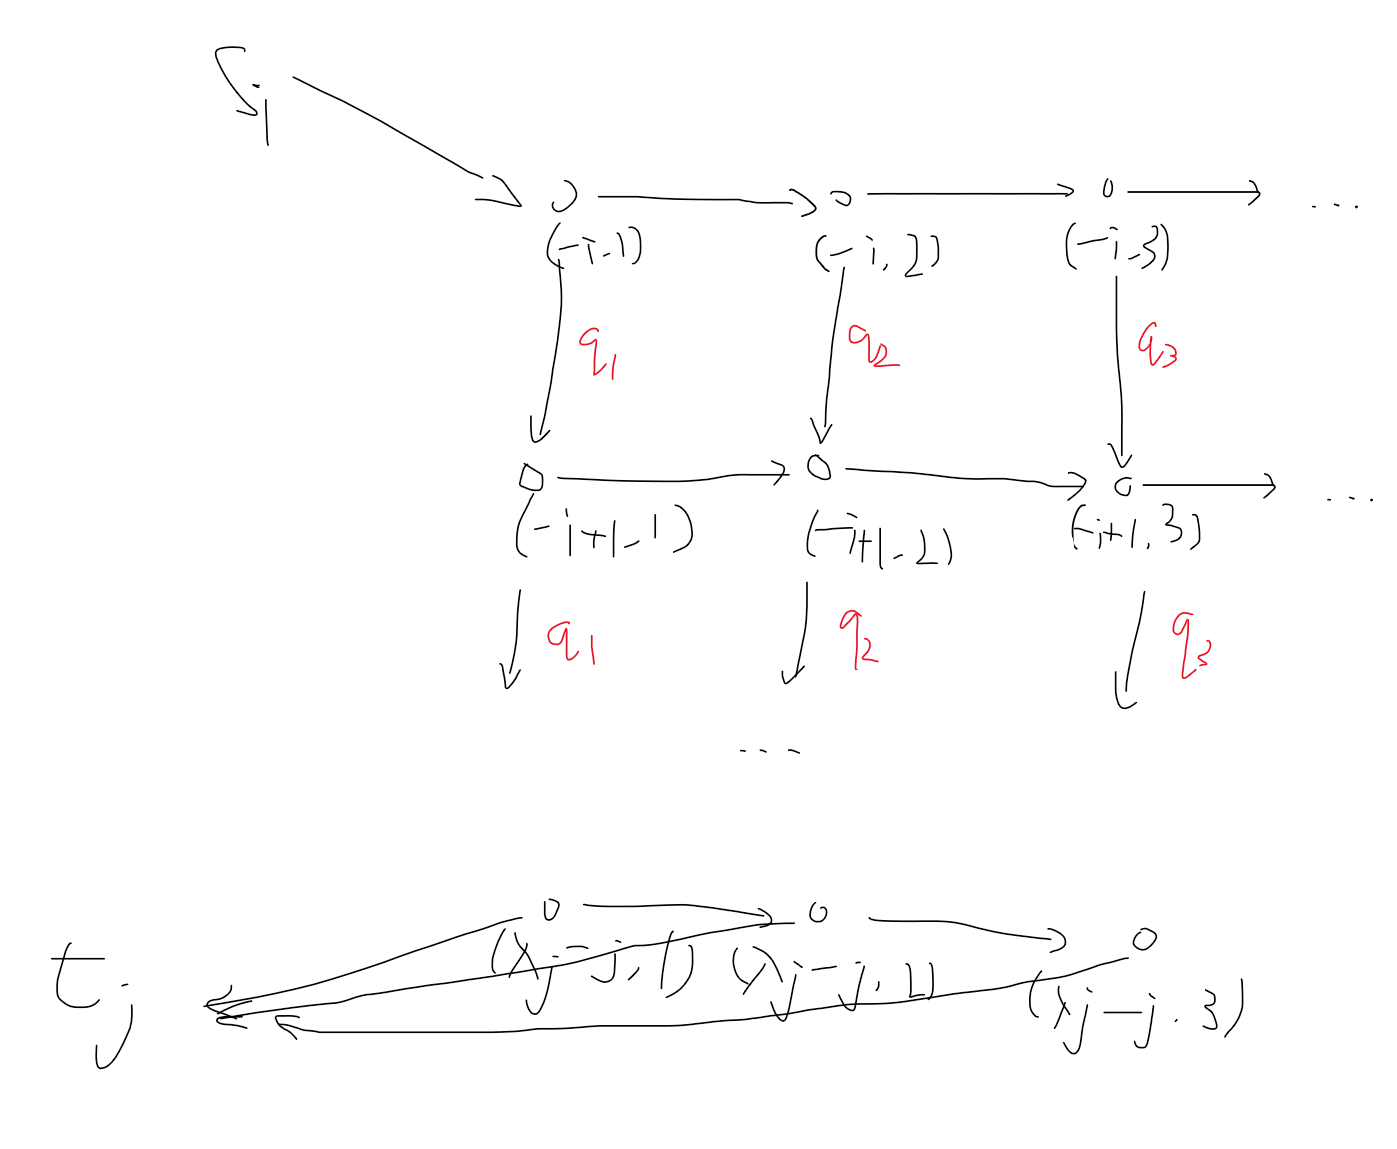 i
(-i, 1) (-i, 2) (-i, 3)
q1 q2 q3
(-i+1, 1) (-i+1, 2) (-i+1, 3)
q1 q2 q3
...
tj (λj-j, 1) (λj-j, 2) (λj-j, 3)